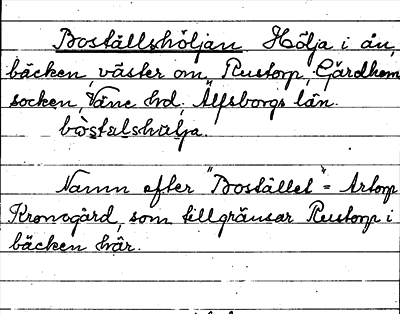 Boställshöljan Hölja i ån,
bäcken, väster om Rustorp, Gärdhem
socken, Väne hd, Älfsborgs län.
bòstɛlshœlja.
Namn efter "Bostället" = Artorp
Kronogård, som tillgränsar Rustorp i
bäcken här.